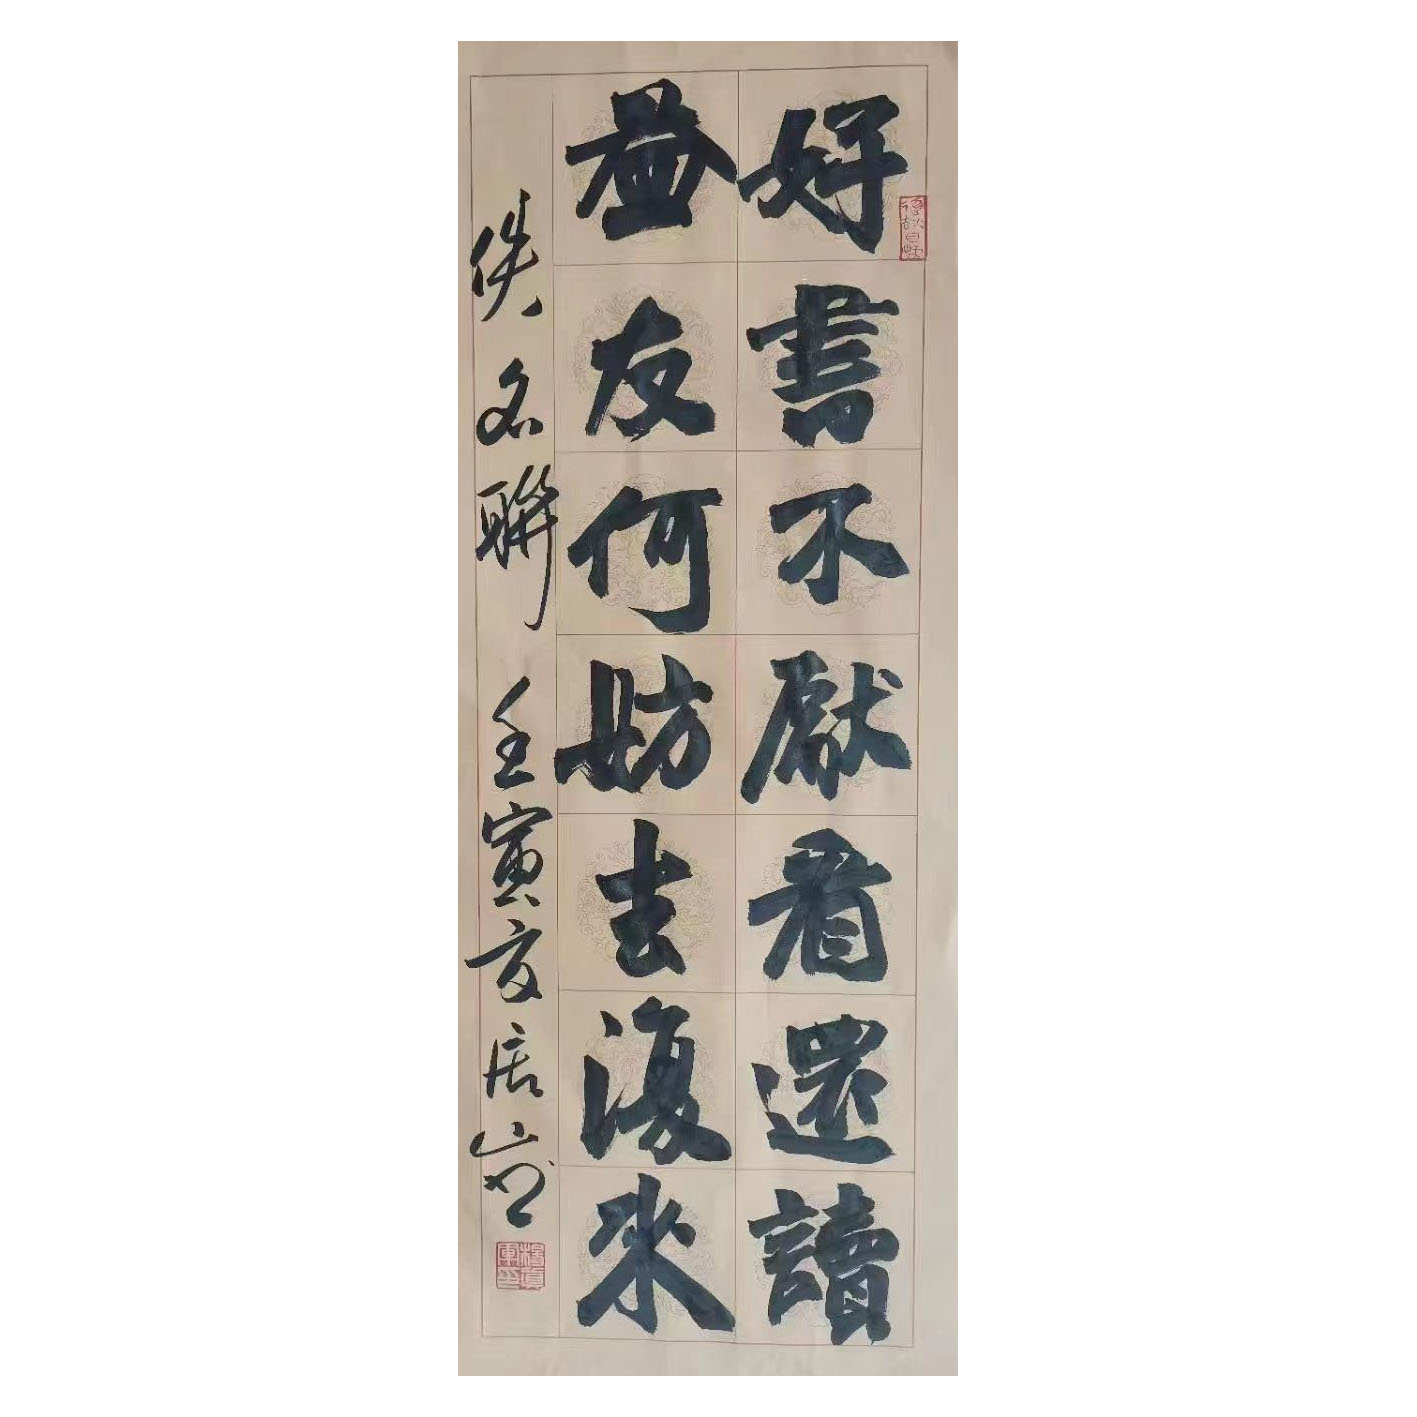 好書不厭看還讀
益友何妨去復來
佚名聯 壬寅夏居山